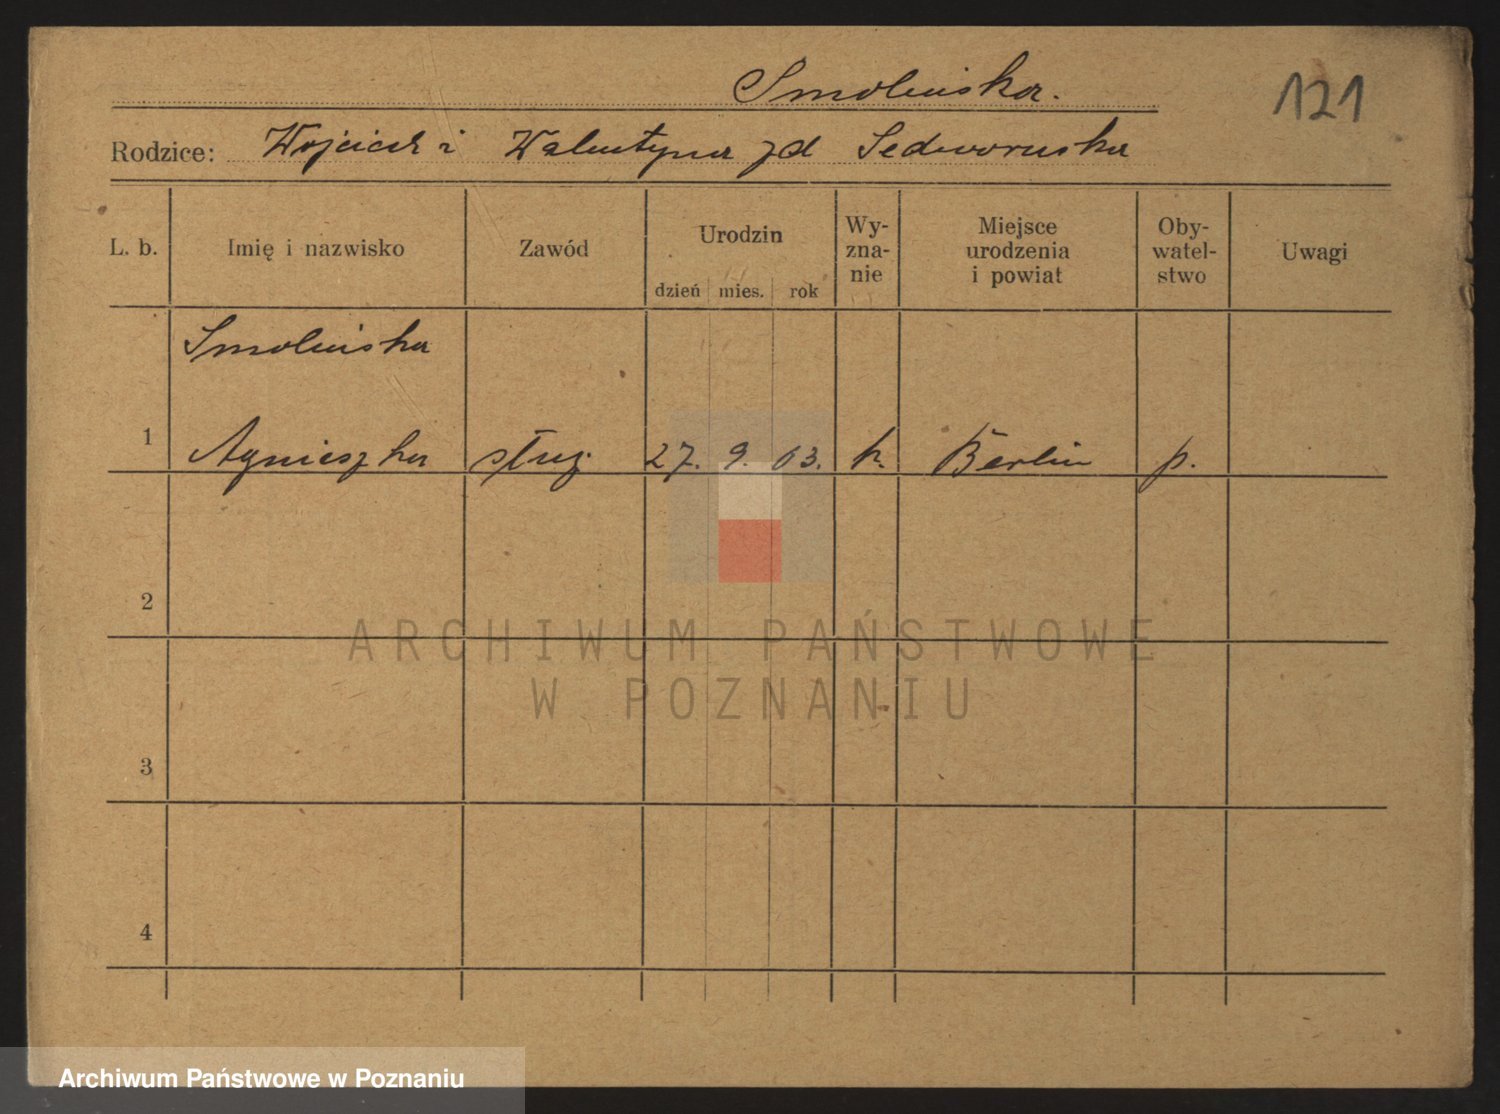 Smolińska.
121
Rodzice: Wojciech i Walentyna zd
L. b. Imię i nazwisko Zawód Urodzin dzień mies. rok Wy-zna-nie Miejsce urodzenia i powiat Oby-watel-stwo Uwagi
Smolińska
1 Agnieszka służ. 27. 9. 03. k. Berlin p.
2
ARCHIWUM PAŃSTWOWE
W POZNANIU
3
4
Archiwum Państwowe w Poznaniu